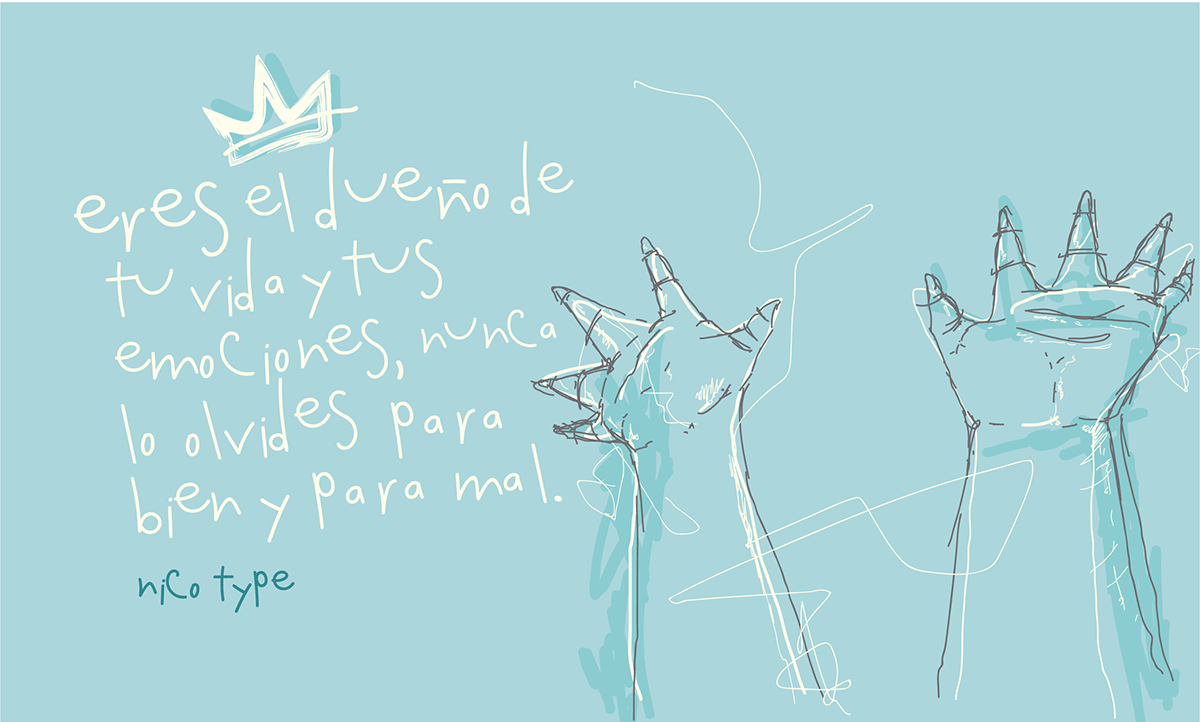 eres el dueño de
tu vida y tus
emociones, nunca
lo olvides para
bien y para mal.
nico type